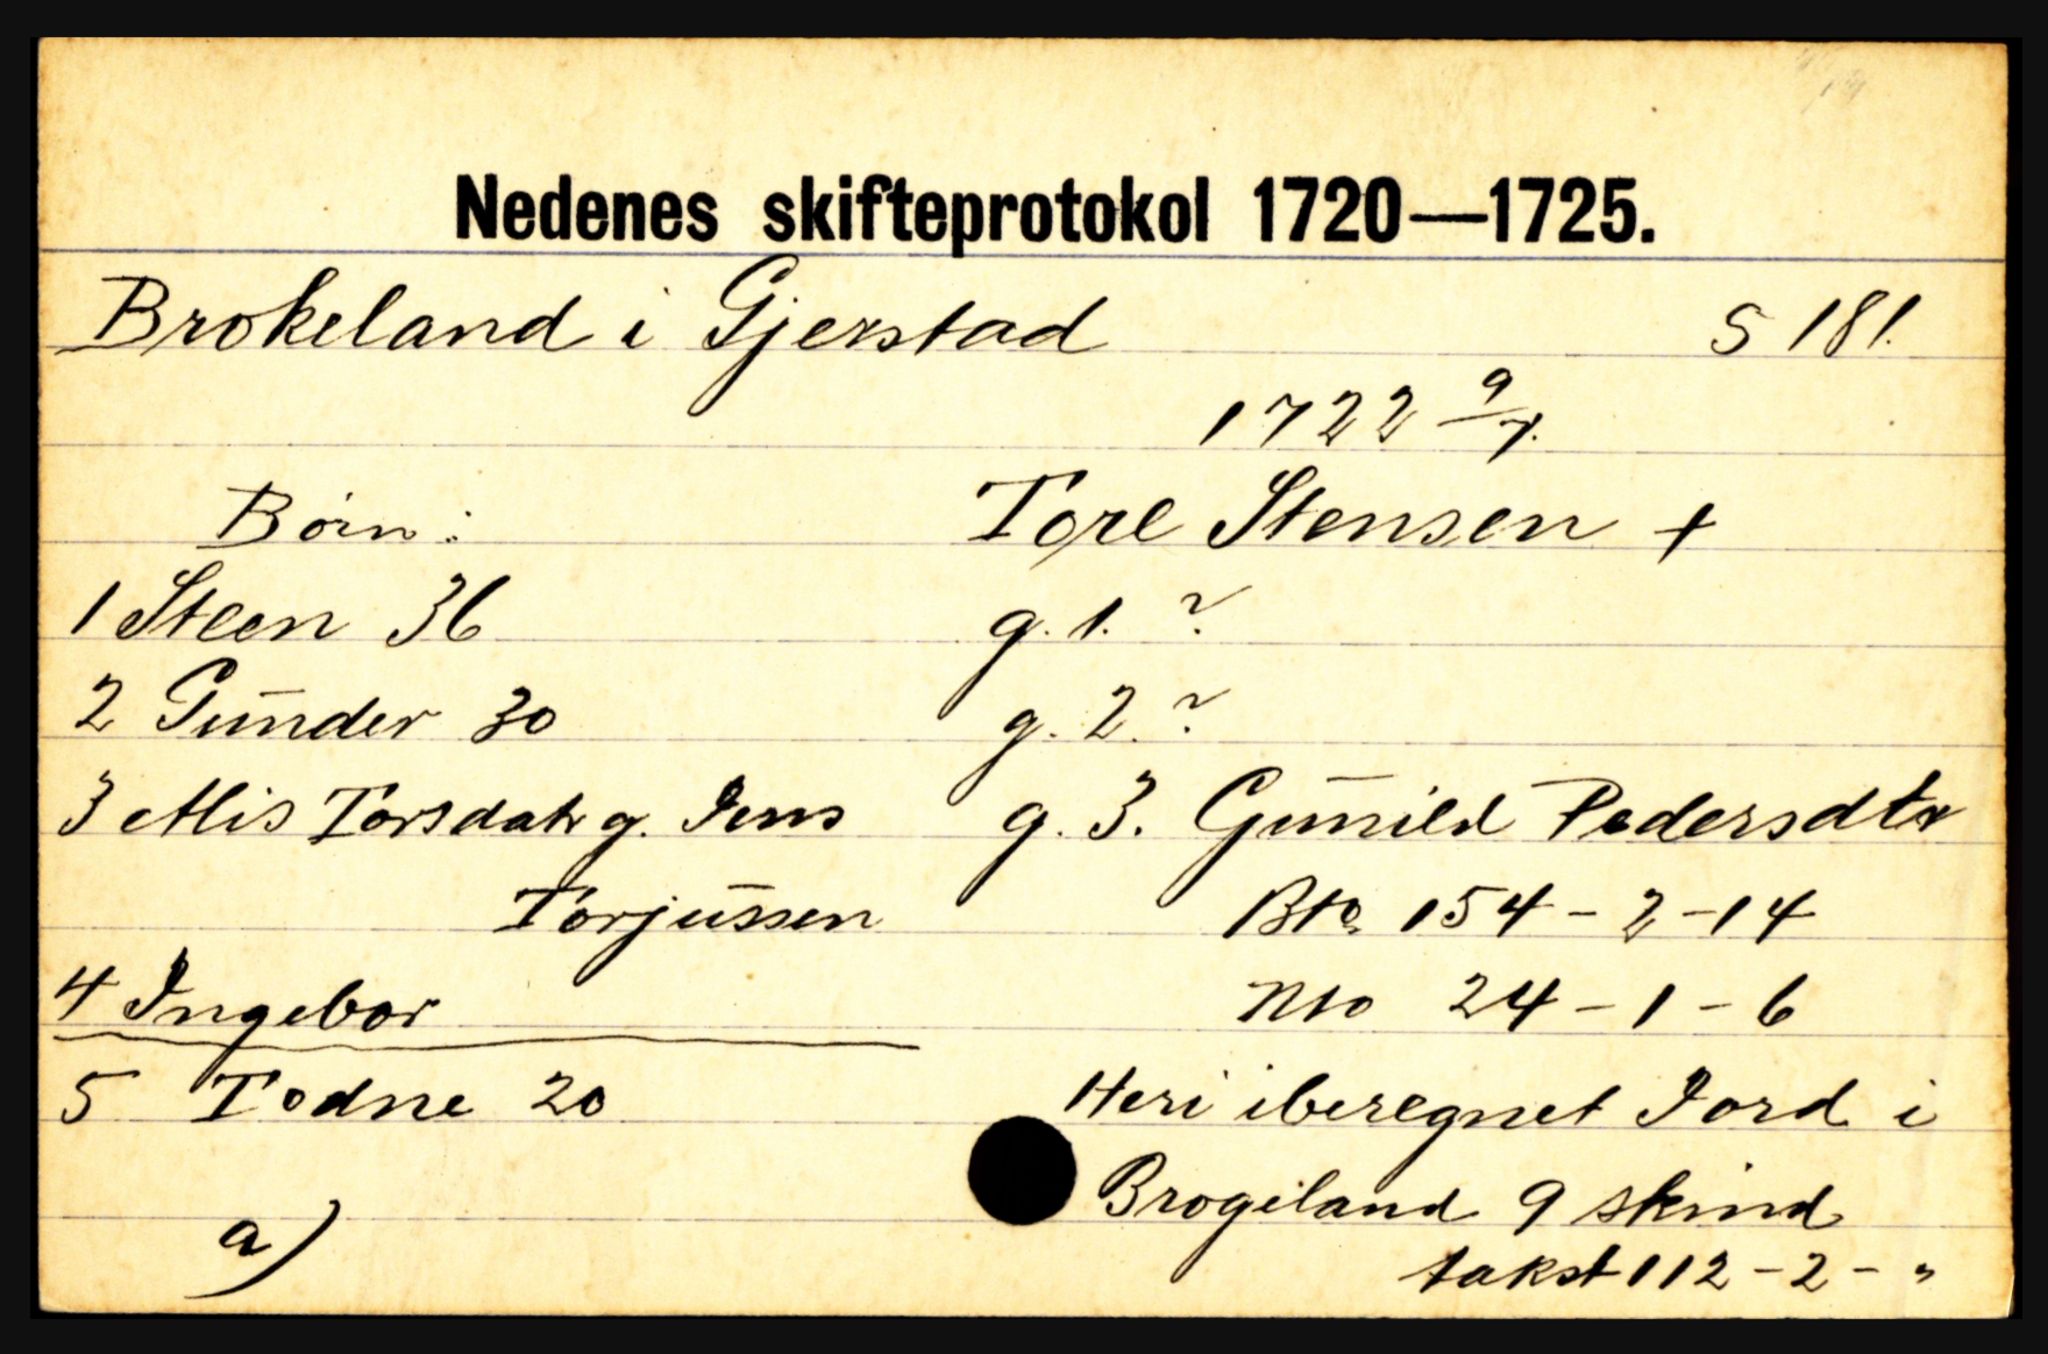 Nedenes skifteprotokol 1720—1725.
Brokeland i Gjerstad S 181.
1722 9/7.
Børn: Tore Stensen +
1 Steen 36 g. 1. ?
2 Gunder 30 g. 2. ?
3 Alis Torsdatr g. Jens g. 3. Gunild Pedersdtr
Torjussen Bto 154-2-14
4 Ingebor Nto 24-1-6
5 Todne 20 Heri iberegnet Jord i
Brogeland 9 skind
a) takst 112-2-"